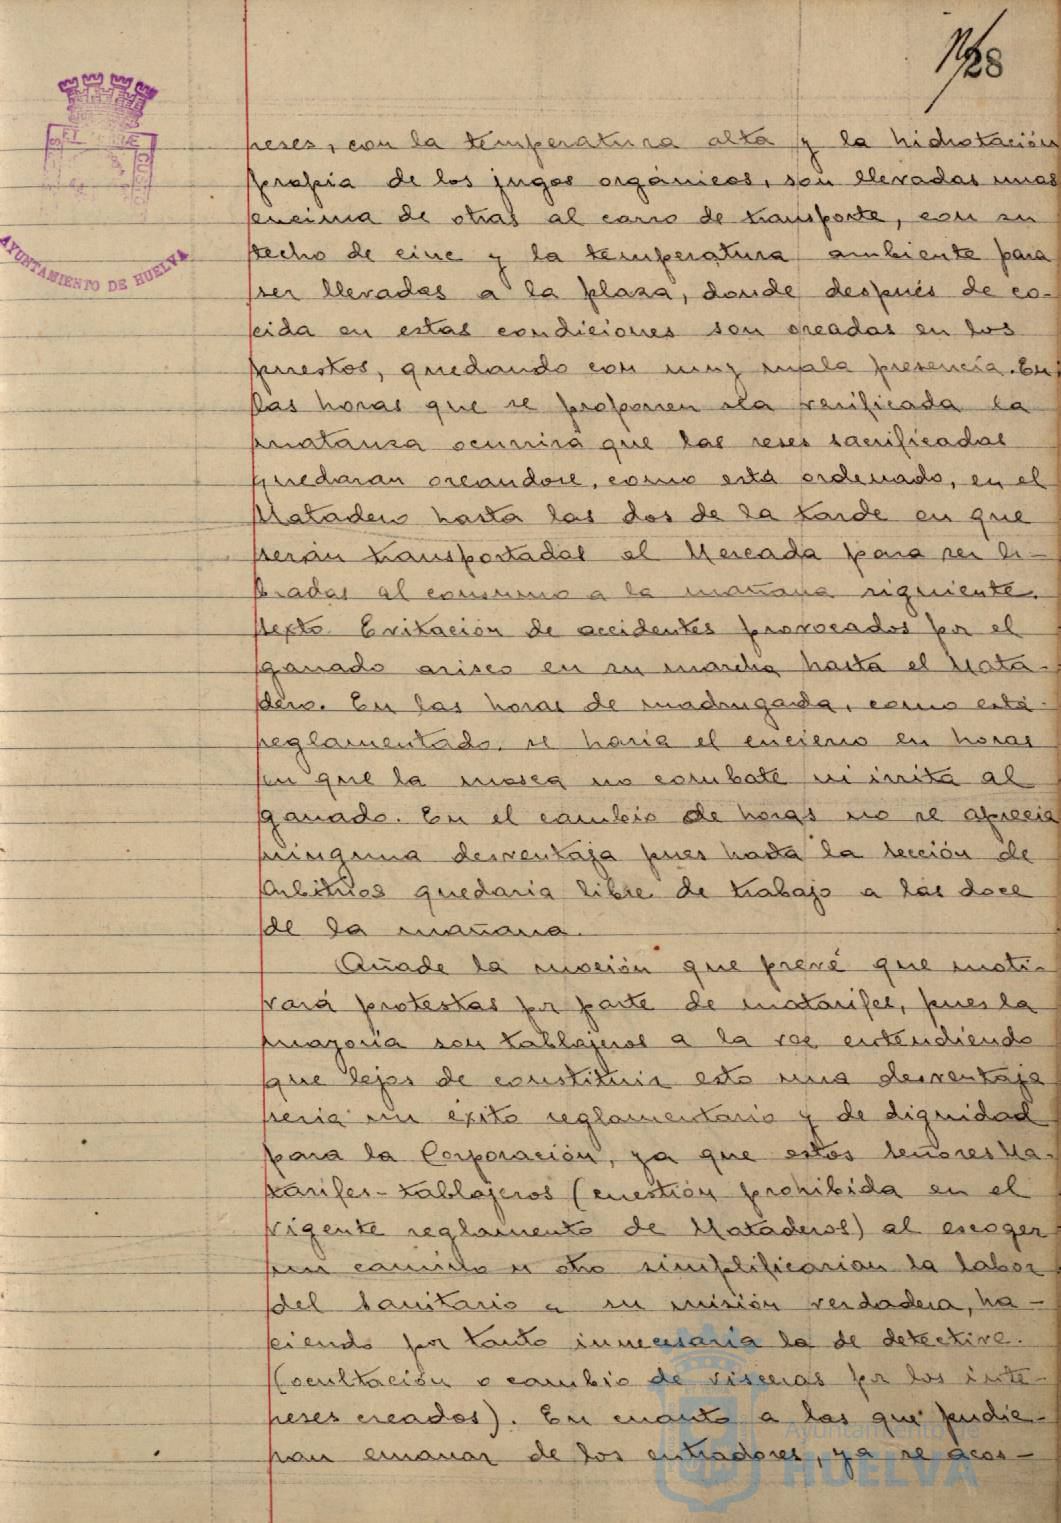 28
AYUNTAMIENTO DE HUELVA
reses, con la temperatura alta y la hidrotación
propia de los jugos orgánicos, son llevadas unas
encima de otras al carro de transporte, con su
techo de cinc y la temperatura ambiente para
ser llevadas a la plaza, donde después de co-
cida en estas condiciones son oreadas en los
puestos, quedando con muy mala presencia. En
las horas que se proponen sea verificada la
matanza ocurrirá que las reses sacrificadas
quedaran oreandose, como está ordenado, en el
Matadero hasta las dos de la tarde en que
serán transportadas al Mercada para ser li-
bradas al consumo a la mañana siguiente.
Sexto Evitación de accidentes provocados por el
ganado arisco en su marcha hasta el Mata-
dero. En las horas de madrugada, como está
reglamentado, se haria el encierro en horas
en que la mosca no combate ni irrita al
ganado. En el cambio de horas no se aprecia
ninguna desventaja pues hasta la sección de
Arbitrios quedaria libre de trabajo a las doce
de la mañana.
Añade la moción que prevé que moti-
vará protestas por parte de matarifes, pues la
mayoria son tablajeros a la vez entendiendo
que lejos de constituir esto una desventaja
seria un éxito reglamentario y de dignidad
para la Corporación, ya que estos señores Ma-
tarifes-tablajeros (cuestión prohibida en el
vigente reglamento de Mataderos) al escoger
un camino u otro simplificarian la labor
del Sanitario a su misión verdadera, ha-
ciendo por tanto innecesaria la de detective.
(ocultación o cambio de visceras por los inte-
reses creados). En cuanto a las que pudie-
ran emanar de los entradores, ya se acos-
Ayuntamiento de
HUELVA